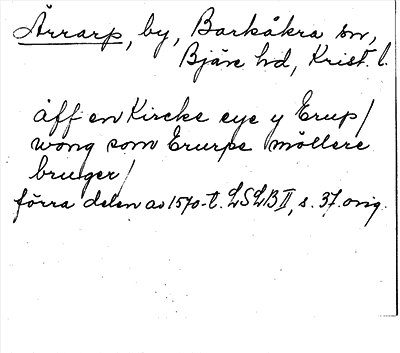 Ärrarp, by, Barkåkra sn,
Bjäre hd, Krist. l.
åff en Kircke eye y Erup/
wong som Erurps möllere
bruger/
förra delen av 1570-t. LSLB II, s. 37. orig.